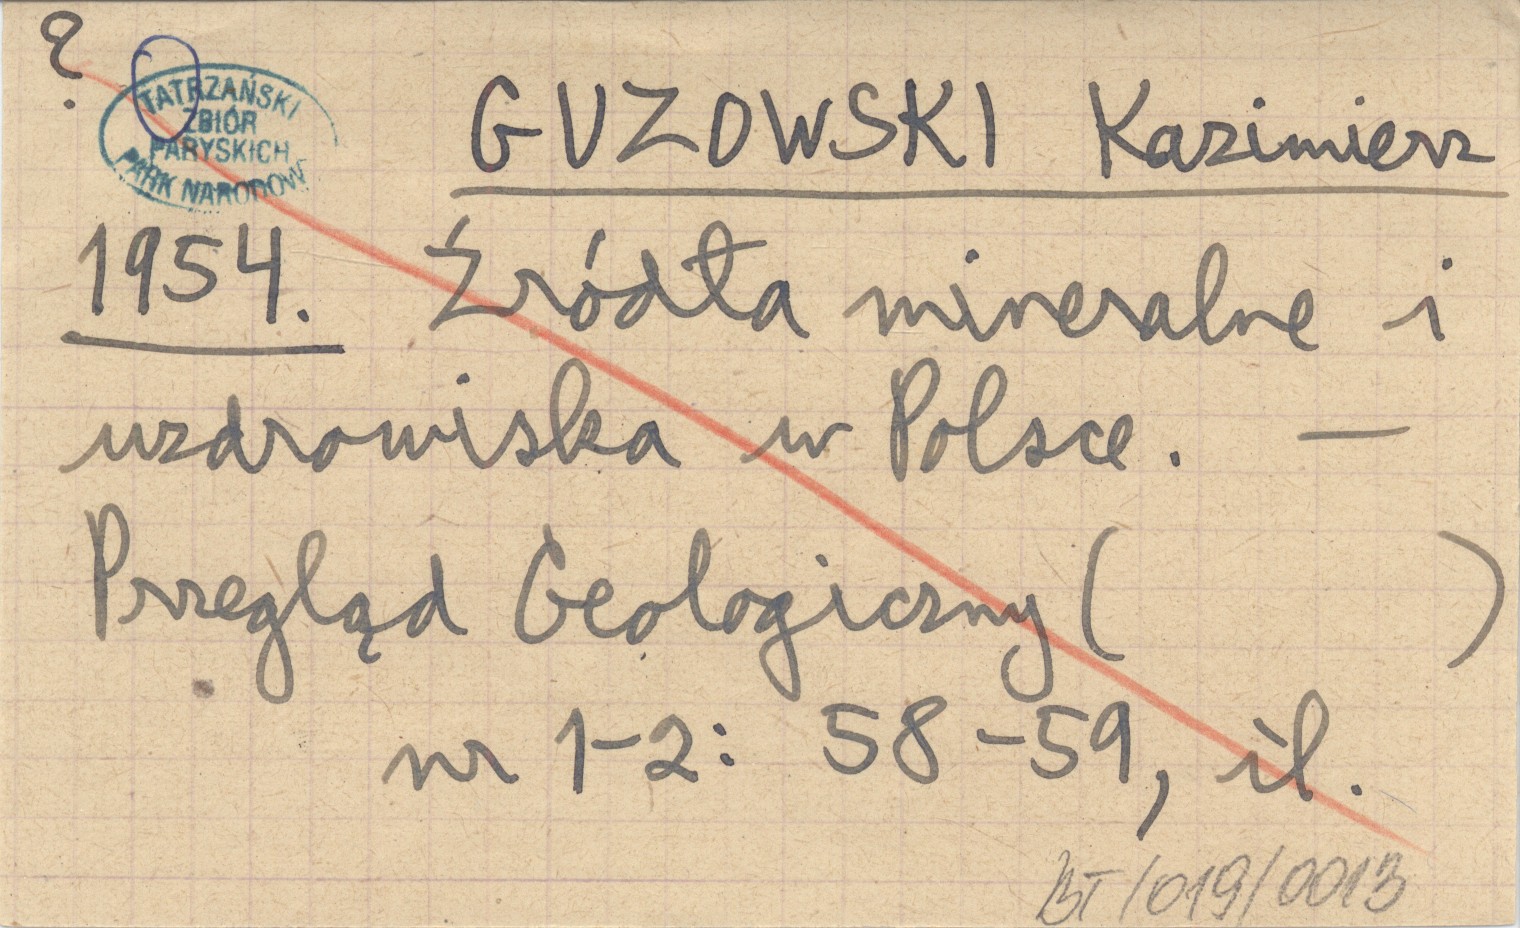 ?
TATRZAŃSKI
ZBIÓR
PARYSKICH
PARK NARODOW
GUZOWSKI Kazimierz
1954. Źródła mineralne i
uzdrowiska w Polsce. —
Przegląd Geologiczny (          )
nr 1-2: 58-59, il.
BT/019/0013